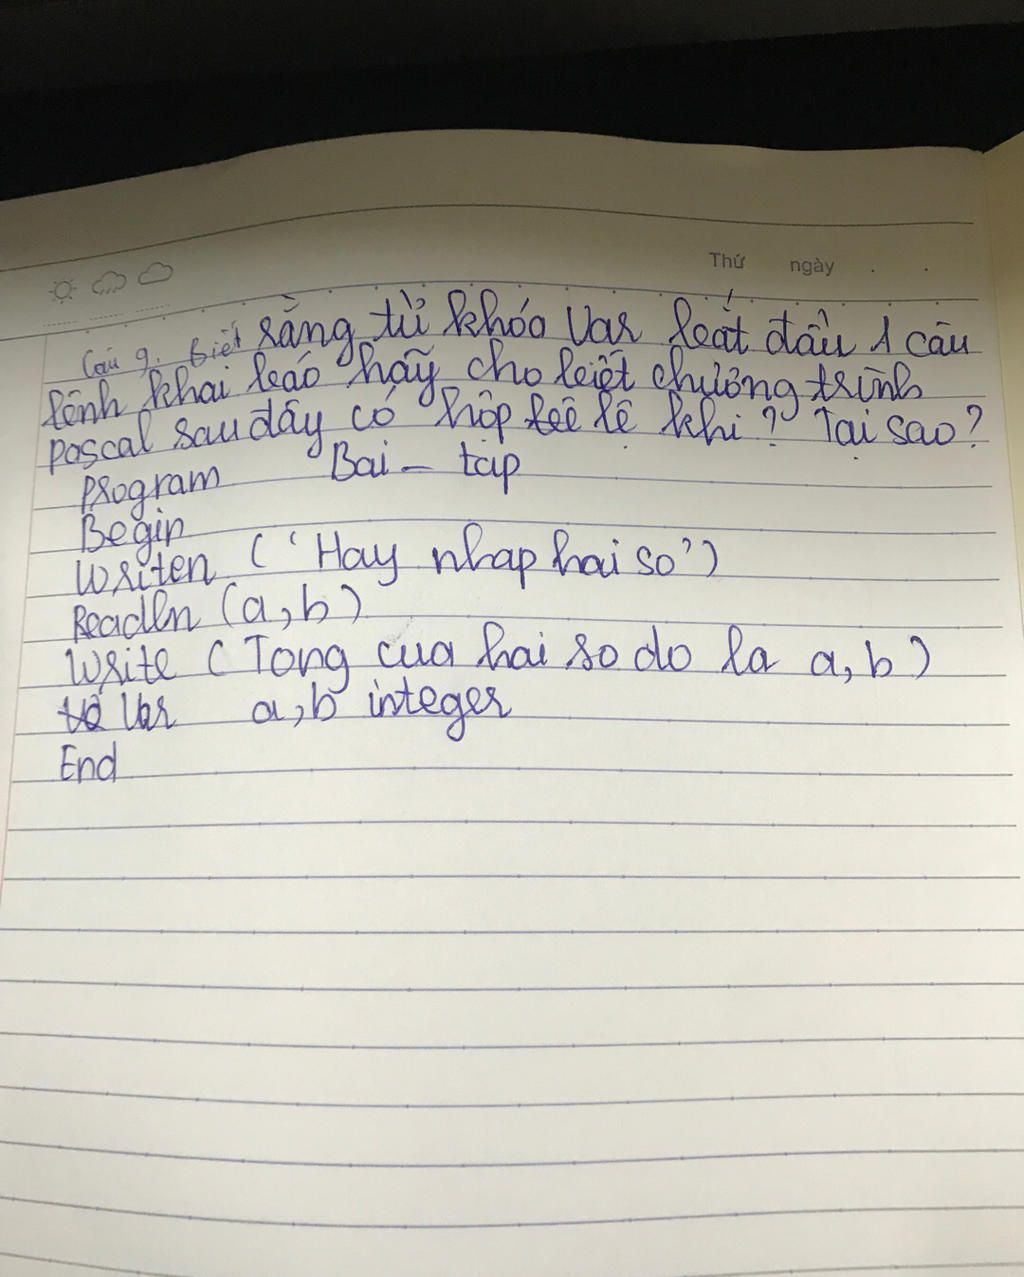 Thứ ngày . .
Câu 9. Biết rằng từ khóa Var bắt đầu 1 câu
lệnh khai báo hãy cho biết chương trình
pascal sau đây có hợp lệ khi? Tại sao?
Program Bai_tap
Begin
Writen ('Hay nhap hai so')
Readln (a,b)
Write (Tong cua hai so do la a,b)
Var a,b integer
End